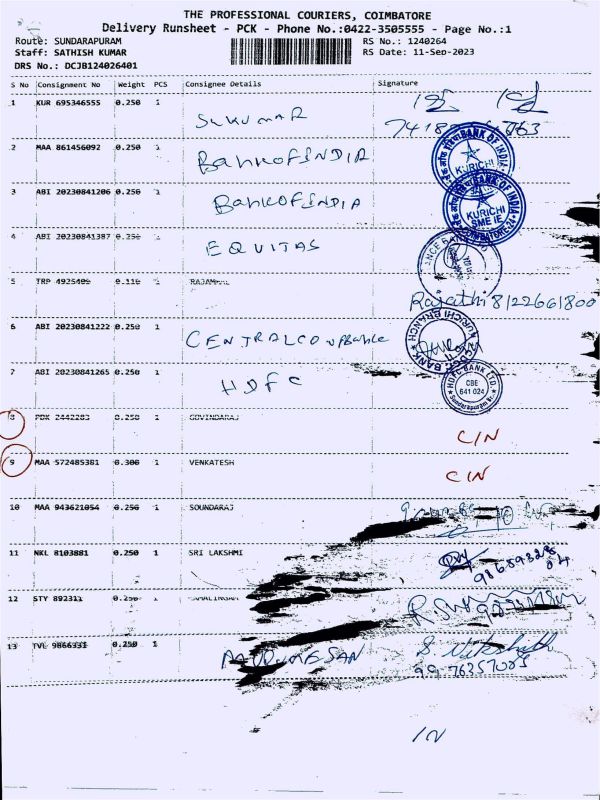 THE PROFESSIONAL COURIERS, COIMBATORE
Delivery Runsheet - PCK - Phone No.:0422-3505555 - Page No.:1
Route: SUNDARAPURAM RS No.: 1240264
Staff: SATHISH KUMAR RS Date: 11-Sep-2023
DRS No.: DCJB124026401
S No Consignment No Weight PCS Consignee Details Signature
1 KUR 695346555 0.250 1 SUKUMAR
2 MAA 861456092 0.250 1 BANKOFINDIA
BANK OF INDIA
KURICHI
3 ABI 20230841206 0.250 1 BANKOFINDIA
BANK OF INDIA
KURICHI
SME
4 ABI 20230841387 0.250 1 EQUITAS
5 TRP 0.110 1
Rajathi 8122661800
6 ABI 20230841222 0.250 1 CENTRALCO
KURICHI BRANCH
BANK
7 ABI 20230841265 0.250 1 HDFC
HDFC BANK LTD.
CBE
641 024
Sundarapuram Br.
8 PDK 2442283 0.250 1 GOVINDARAJ C/N
9 MAA 572485381 0.300 1 VENKATESH C/N
10 MAA 943621054 0.250 1 SOUNDARAJ
11 NKL 8103881 0.250 1 SRI LAKSHMI
12 STY 892311 0.250 1
13 TVL 9866331 0.250 1 MURUGESAN